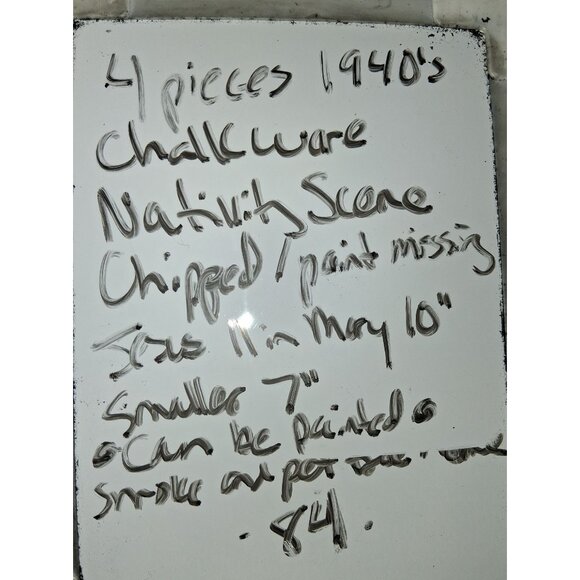 4 pieces 1940's
Chalkware
Nativity Scene
Chipped / paint missing
Jesus 11 in Mary 10"
Smaller 7"
• Can be painted •
smoke and pet
• 84 •